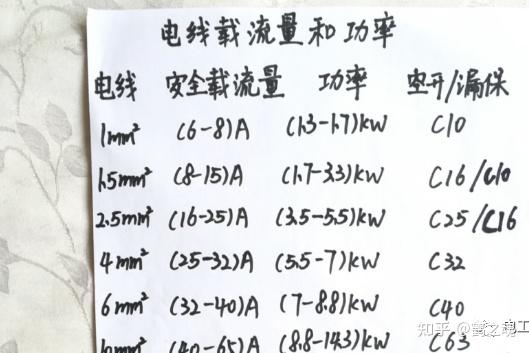 电线载流量和功率
电线 安全载流量 功率 空开/漏保
1mm² (6-8)A (1.3-1.7)kW C10
1.5mm² (8-15)A (1.7-3.3)kW C16/C10
2.5mm² (16-25)A (3.5-5.5)kW C25/C16
4mm² (25-32)A (5.5-7)kW C32
6mm² (32-40)A (7-8.8)kW C40
10mm² (40-65)A (8.8-14.3)kW C63
知乎 @
电工